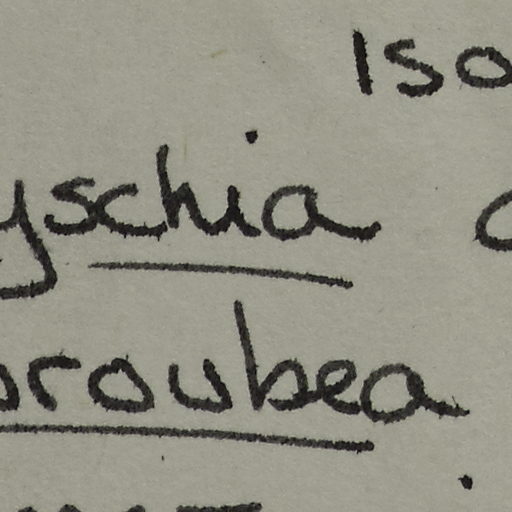 Iso
yschia
roubea